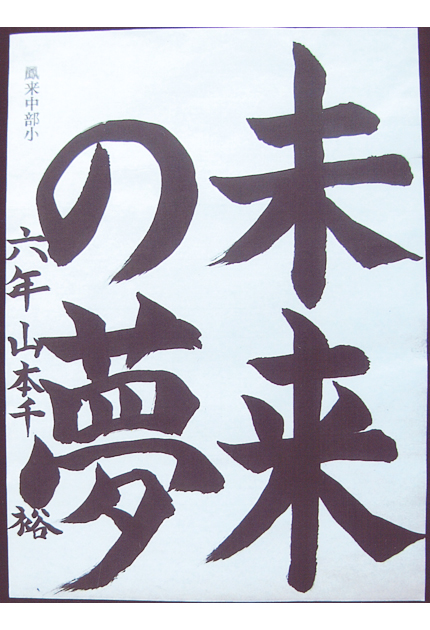 未来
の夢
六年 山本千裕
鳳来中部小